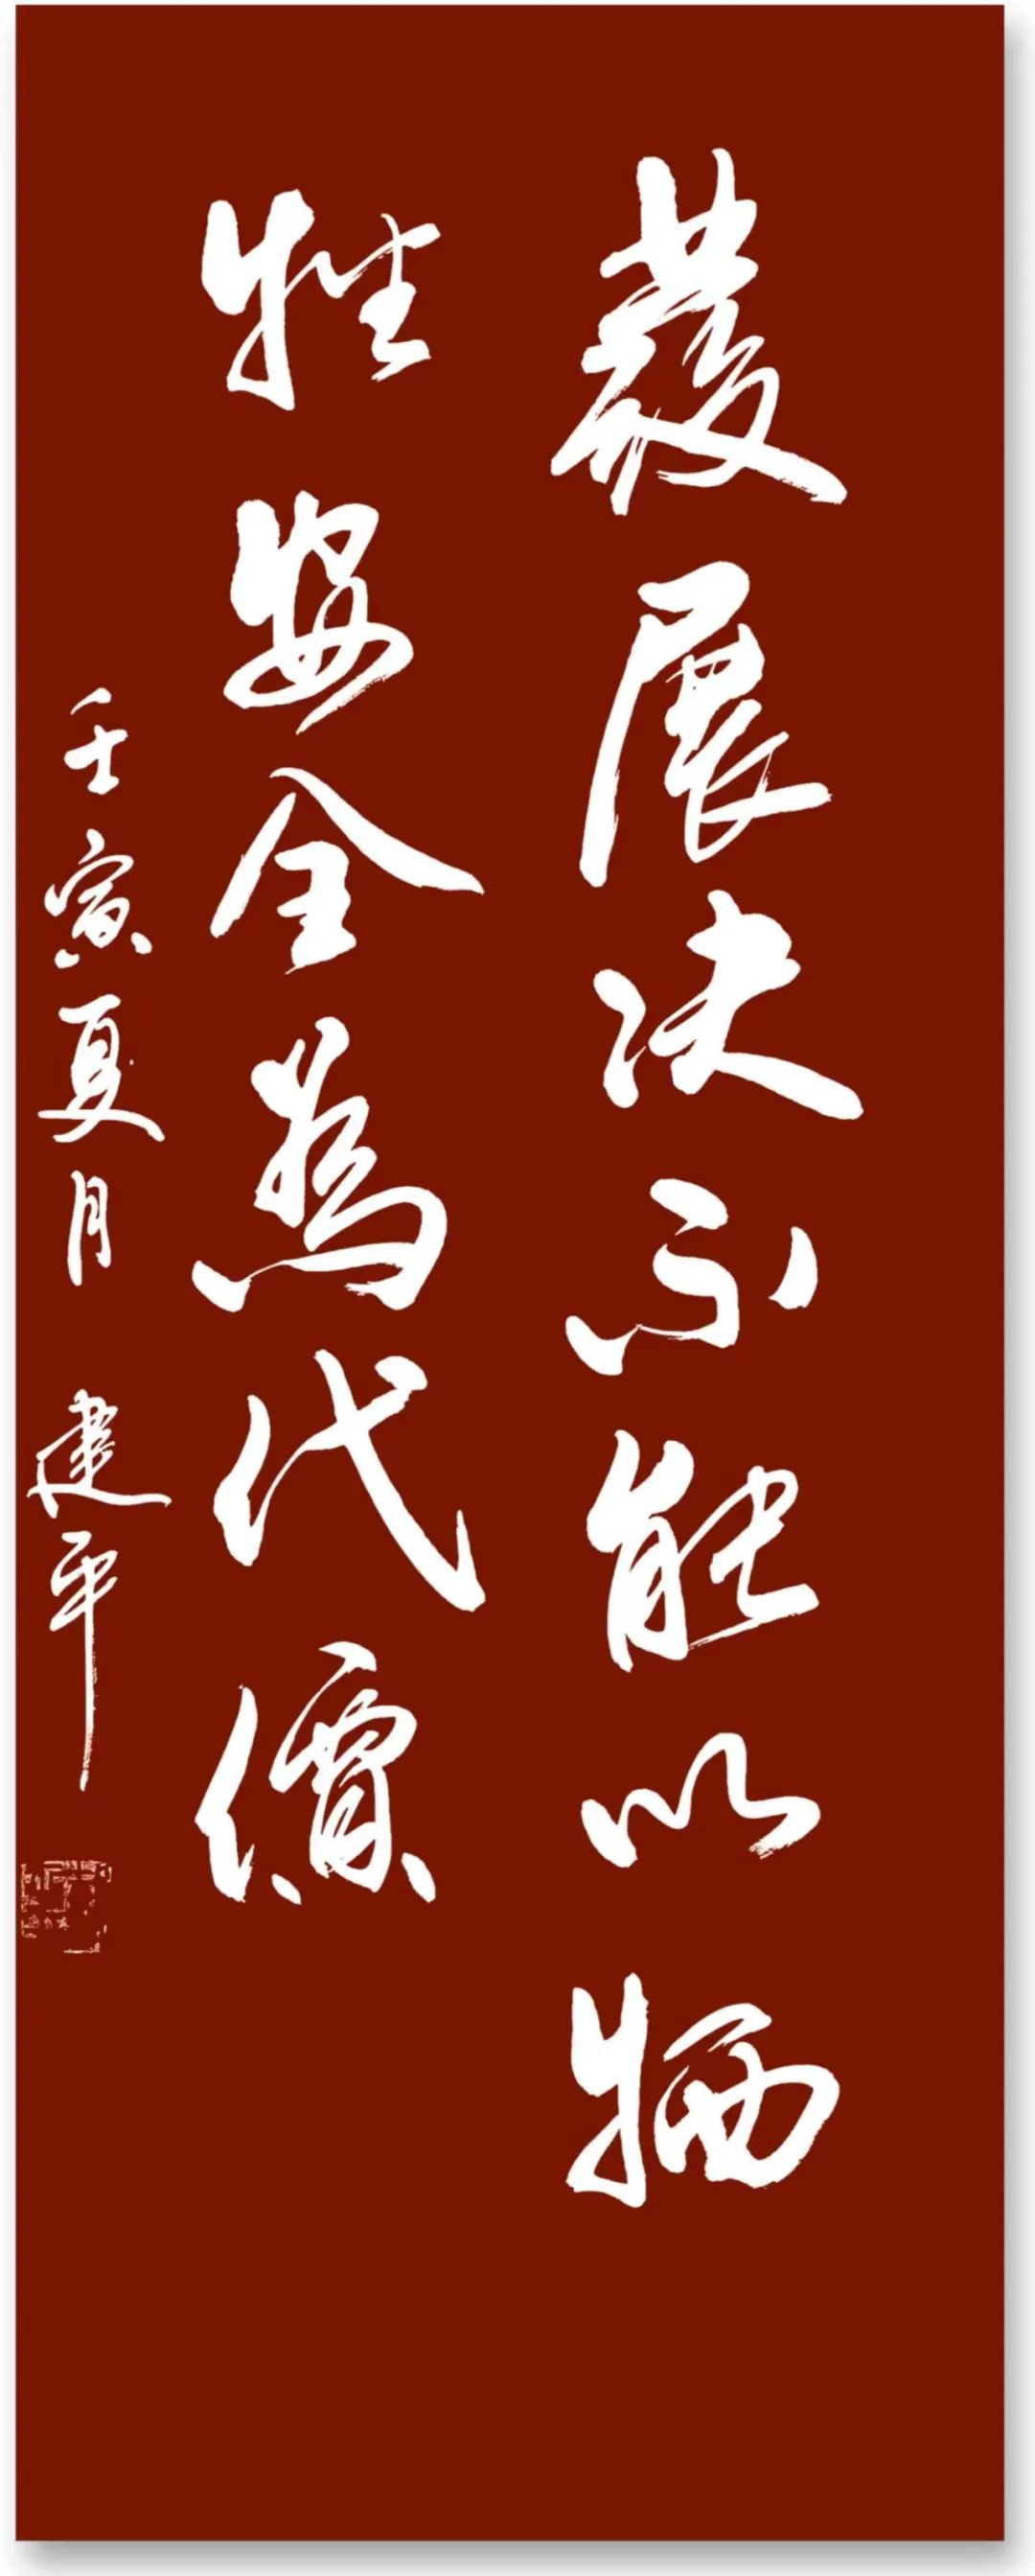 發展决不能以牺
牲安全為代價
壬寅夏月 建平